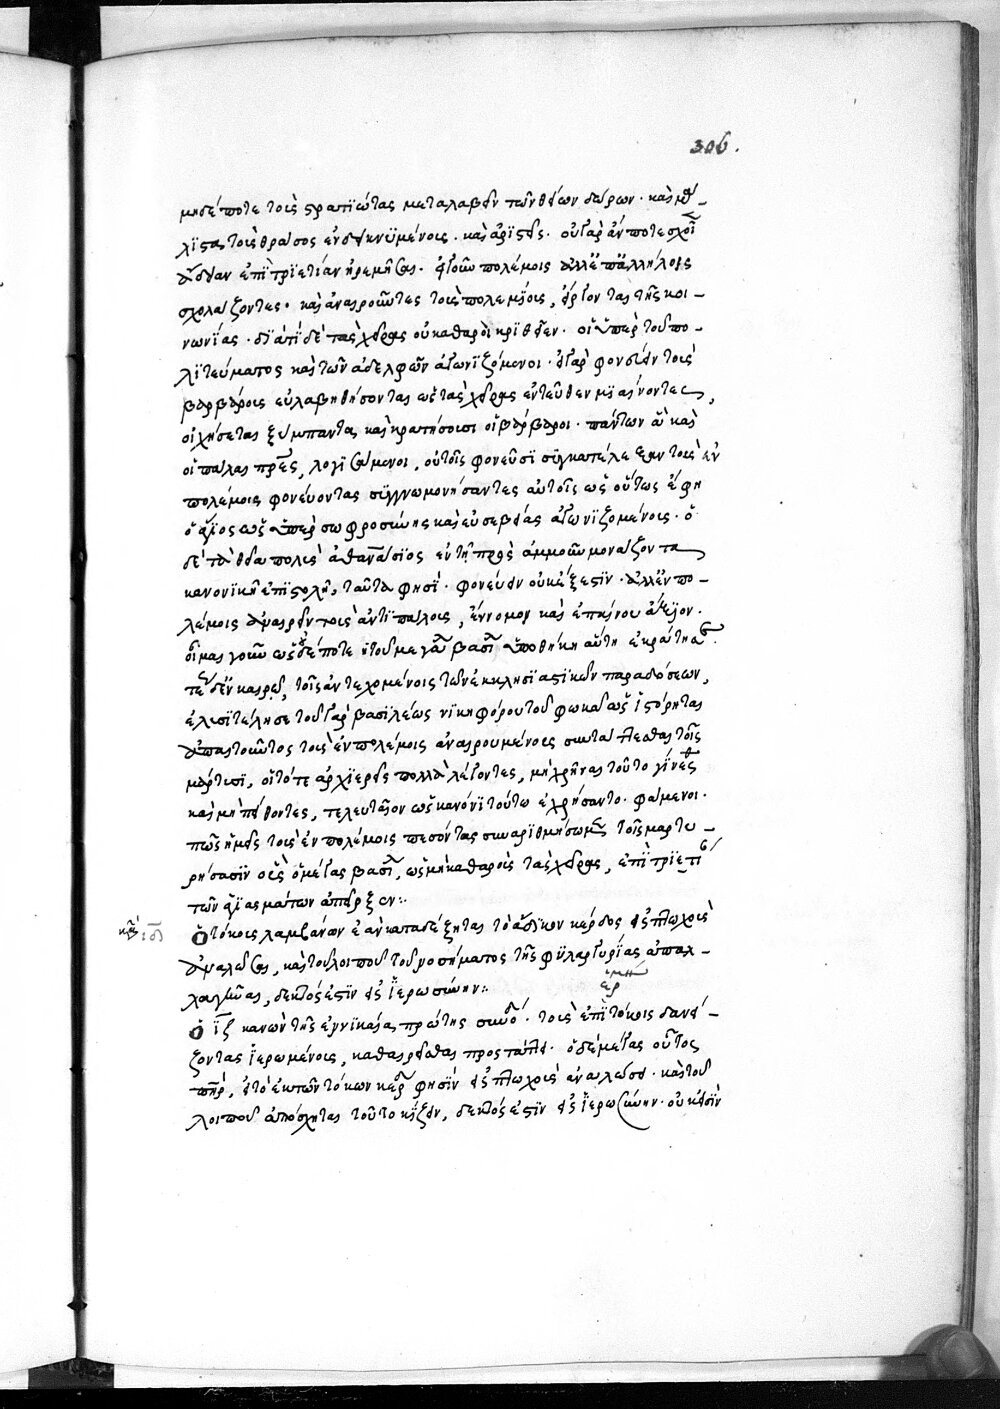 306.
μηδέποτε τοὺς στρατιώτας μεταλαβεῖν τῶν θείων δώρων. καὶ μά-
λιστα τοὺς θράσος ἐνδεικνυμένους. καὶ ἀρίστους. οὐ γὰρ ἄν ποτε σχοῖεν
ἄδειαν ἐπὶ τριετίαν ἠρεμῆσαι. εἰ γοῦν πολέμοις ἀλλεπαλλήλοις
σχολάζοντες. καὶ ἀναιροῦντες τοὺς πολεμίους, εἴργονται τῆς κοι-
νωνίας. διατί δὲ τὰς χεῖρας οὐ καθαροὶ κριθεῖεν. οἱ ὑπὲρ τοῦ πο-
λιτεύματος καὶ τῶν ἀδελφῶν ἀγωνιζόμενοι. εἰ γὰρ φονεύειν τοὺς
βαρβάρους εὐλαβηθήσονται ὡς τὰς χεῖρας ἐντεῦθεν μιαίνοντες,
οἰχήσεται ξύμπαντα, καὶ κρατήσουσι οἱ βάρβαροι. πάντων οὖν καὶ
οἱ πάλαι πρες, λογισάμενοι, οὐ τοῖς φονεῦσι συγκατέλεξαν τοὺς ἐν
πολέμοις φονεύοντας συγγνωμονήσαντες αὐτοῖς ὡς οὕτως ἔφη
ὁ ἅγιος ὡς ὑπὲρ σωφροσύνης καὶ εὐσεβείας ἀγωνιζομένοις. ὁ
δέ τὰ θεῖα πολὺς ἀθανάσιος ἐν τῇ πρὸς ἀμμοῦν μονάζοντα
κανονικῇ ἐπιστολῇ, ταῦτα φησί. φονεύειν οὐκ ἔξεστιν. ἀλλ' ἐν πο-
λέμοις ἀναιρεῖν τοὺς ἀντιπάλους, ἔννομον καὶ ἐπαίνου ἄξιον.
οἶμαι γοῦν ὡς οὐδέποτε ἡ τοῦ μεγάλου βασι ὑποθήκη αὕτη ἐκράτησ.
τέως δ' ἐν καιρῷ, τοῖς ἀντεχομένοις τῶν ἐκκλησιαστικῶν παραδόσεων,
ἐλυσιτέλησε τοῦ γὰρ βασιλέως νικηφόρου τοῦ φωκᾶ ὡς ἱστόρηται
ἀπαιτοῦντος τοὺς ἐν πολέμοις ἀναιρουμένους συντάττεσθαι τοῖς
μάρτυσι, οἱ τότε ἀρχιερεῖς πολλὰ λέγοντες, μὴ χρῆναι τοῦτο γίνεσθ
καὶ μὴ πείθοντες, τελευταῖον ὡς κανόνι τούτῳ ἐχρήσαντο. φάμενοι.
πῶς ἡμεῖς τοὺς ἐν πολέμοις πεσόντας συναριθμήσωμεν τοῖς μαρτυ-
ρήσασιν οὓς ὁ μέγας βασι, ὡς μὴ καθαροὺς τὰς χεῖρας, ἐπὶ τριετι
τῶν ἁγιασμάτων ἀπεῖρξεν:
ὁ τόκους λαμβάνων ἐὰν καταδέξηται τὸ ἄδικον κέρδος εἰς πτωχοὺς
ἀναλῶσαι, καὶ τοῦ λοιποῦ τοῦ νοσήματος τῆς φιλαργυρίας ἀπαλ-
λαγῆναι, δεκτός ἐστιν εἰς ἱερωσύνην:
ἑρμη
ὁ ιζ κανὼν τῆς ἐν νικαίᾳ πρώτης συνο. τοὺς ἐπὶ τόκοις δανεί-
ζοντας ἱερωμένους, καθαιρεῖσθαι προστάττει. ὁ δὲ μέγας οὗτος
πηρ, εἰ τὸ ἐκ τῶν τόκων κερ φησὶν εἰς πτωχοὺς ἀναλώσει. καὶ τοῦ
λοιποῦ ἀπόσχηται τοῦ τοκίζειν, δεκτός ἐστιν εἰς ἱερωσύνην. οὐκ εἰσὶν